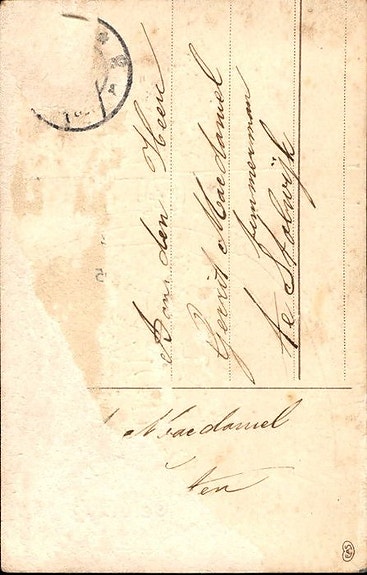 Aan den Heere
Gerrit Macdaniel
Timmerman
te Stolwijk
Macdaniel